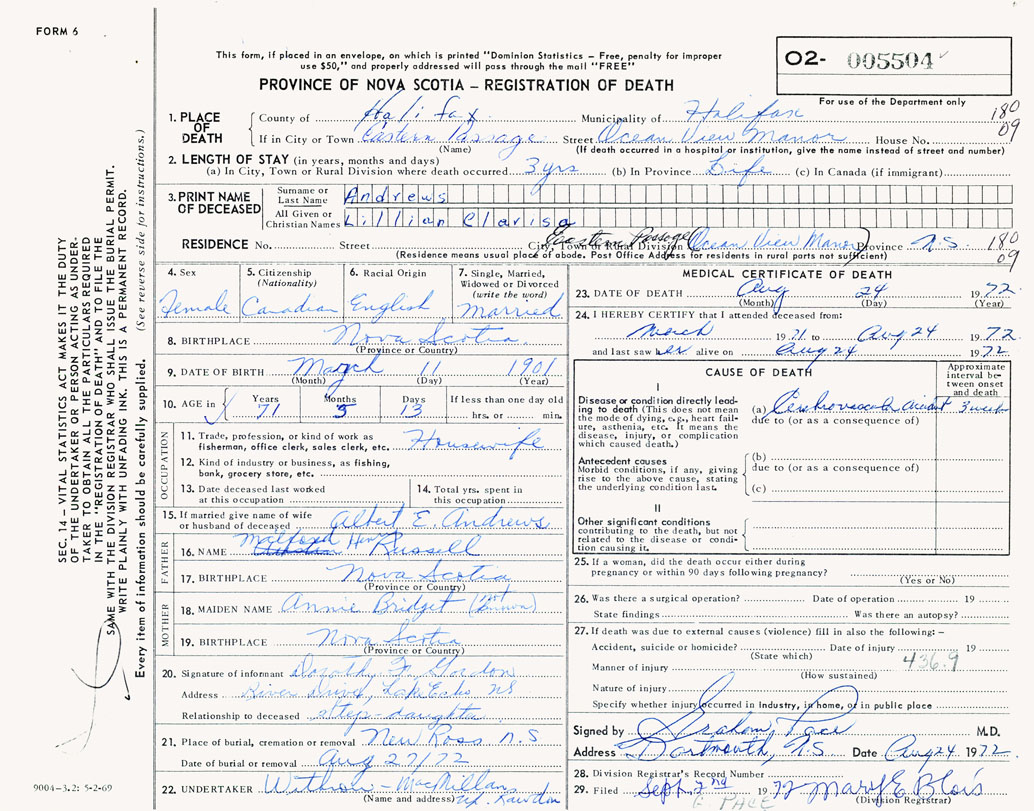 FORM 6
This form, if placed in an envelope, on which is printed "Dominion Statistics – Free, penalty for improper
use $50," and properly addressed will pass through the mail "FREE"
PROVINCE OF NOVA SCOTIA – REGISTRATION OF DEATH
O2- 005504
For use of the Department only
1. PLACE OF DEATH
County of Halifax Municipality of Halifax 180
If in City or Town Eastern Passage Street Ocean View Manor House No. 09
(Name) (If death occurred in a hospital or institution, give the name instead of street and number)
2. LENGTH OF STAY (in years, months and days)
(a) In City, Town or Rural Division where death occurred 3 yrs (b) In Province Life (c) In Canada (if immigrant)
3. PRINT NAME OF DECEASED
Surname or Last Name Andrews
All Given or Christian Names Lillian Clarisa
RESIDENCE No. Street City, Town or Rural Division Eastern Passage (Ocean View Manor) Province N.S 180
(Residence means usual place of abode. Post Office Address for residents in rural parts not sufficient) 09
4. Sex
Female
5. Citizenship
(Nationality)
Canadian
6. Racial Origin
English
7. Single, Married,
Widowed or Divorced
(write the word)
Married
8. BIRTHPLACE Nova Scotia
(Province or Country)
9. DATE OF BIRTH March 11 1901
(Month) (Day) (Year)
10. AGE in
Years Months Days If less than one day old
71 5 13 hrs. or min.
OCCUPATION
11. Trade, profession, or kind of work as
fisherman, office clerk, sales clerk, etc. Housewife
12. Kind of industry or business, as fishing,
bank, grocery store, etc.
13. Date deceased last worked
at this occupation
14. Total yrs. spent in
this occupation
15. If married give name of wife
or husband of deceased Albert E. Andrews
FATHER
16. NAME Malford Henry Russell
17. BIRTHPLACE Nova Scotia
(Province or Country)
MOTHER
18. MAIDEN NAME Annie Bridget
19. BIRTHPLACE Nova Scotia
(Province or Country)
20. Signature of informant Gordon
Address Drive, Lake Echo NS
Relationship to deceased step-daughter
21. Place of burial, cremation or removal New Ross N.S
Date of burial or removal Aug 27/72
22. UNDERTAKER Withrow - MacMillan
(Name and address) Mt. Rawdon
MEDICAL CERTIFICATE OF DEATH
23. DATE OF DEATH Aug 24 1972
(Month) (Day) (Year)
24. I HEREBY CERTIFY that I attended deceased from:
March 1971 to Aug 24 1972
and last saw her alive on Aug 24 1972
CAUSE OF DEATH
Approximate
interval be-
tween onset
and death
I
Disease or condition directly lead-
ing to death (This does not mean
the mode of dying, e.g., heart fail-
ure, asthenia, etc. It means the
disease, injury, or complication
which caused death.)
(a) Cerebrovascular accident 3 weeks
due to (or as a consequence of)
Antecedent causes
Morbid conditions, if any, giving
rise to the above cause, stating
the underlying condition last.
(b)
due to (or as a consequence of)
(c)
II
Other significant conditions
contributing to the death, but not
related to the disease or condi-
tion causing it.
25. If a woman, did the death occur either during
pregnancy or within 90 days following pregnancy?
(Yes or No)
26. Was there a surgical operation? Date of operation 19
State findings Was there an autopsy?
27. If death was due to external causes (violence) fill in also the following: –
Accident, suicide or homicide? Date of injury 19
(State which) 436.9
Manner of injury
(How sustained)
Nature of injury
Specify whether injury occurred in Industry, in home, or in public place
Signed by Graham Pace M.D.
Address Dartmouth, N.S Date Aug 24 1972
28. Division Registrar's Record Number
29. Filed Sept. 2nd 1972 Mary E Blois
(Division Registrar)
G. PACE
SEC. 14 – VITAL STATISTICS ACT MAKES IT THE DUTY
OF THE UNDERTAKER OR PERSON ACTING AS UNDER-
TAKER TO OBTAIN ALL THE PARTICULARS REQUIRED
IN THE "REGISTRATION OF DEATH" AND TO FILE THE
SAME WITH THE DIVISION REGISTRAR WHO SHALL ISSUE THE BURIAL PERMIT.
WRITE PLAINLY WITH UNFADING INK. THIS IS A PERMANENT RECORD.
Every item of information should be carefully supplied. (See reverse side for instructions.)
9004-3.2: 5-2-69